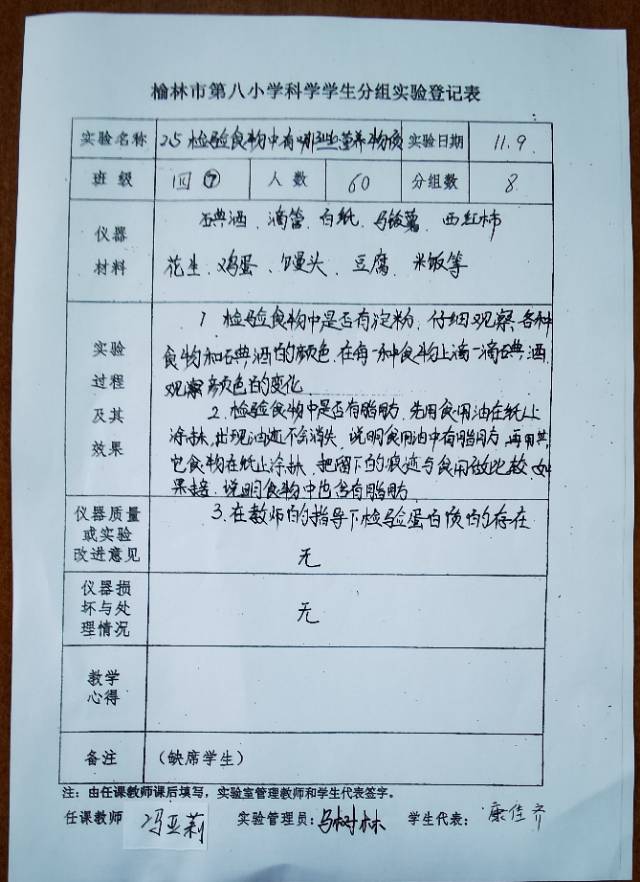 榆林市第八小学科学学生分组实验登记表
实验名称 25 检验食物中有哪些营养物质 实验日期 11.9.
班级 四⑦ 人数 60 分组数 8
仪器材料
碘酒、滴管、白纸、马铃薯、西红柿
花生、鸡蛋、馒头、豆腐、米饭等
实验过程及其效果
1 检验食物中是否有淀粉,仔细观察各种
食物和碘酒的颜色,在每一种食物上滴一滴碘酒,
观察颜色的变化
2. 检验食物中是否有脂肪,先用食用油在纸上
涂抹,出现油迹不会消失,说明食用油中有脂肪,再用其
它食物在纸上涂抹,把留下的痕迹与食用做比较,如
果接,说明食物中也含有脂肪
3. 在教师的指导下检验蛋白质的存在
仪器质量
或实验
改进意见
无
仪器损
坏与处
理情况
无
教学
心得
备注 (缺席学生)
注:由任课教师课后填写,实验室管理教师和学生代表签字。
任课教师 冯亚莉 实验管理员:马树林 学生代表:康佳齐